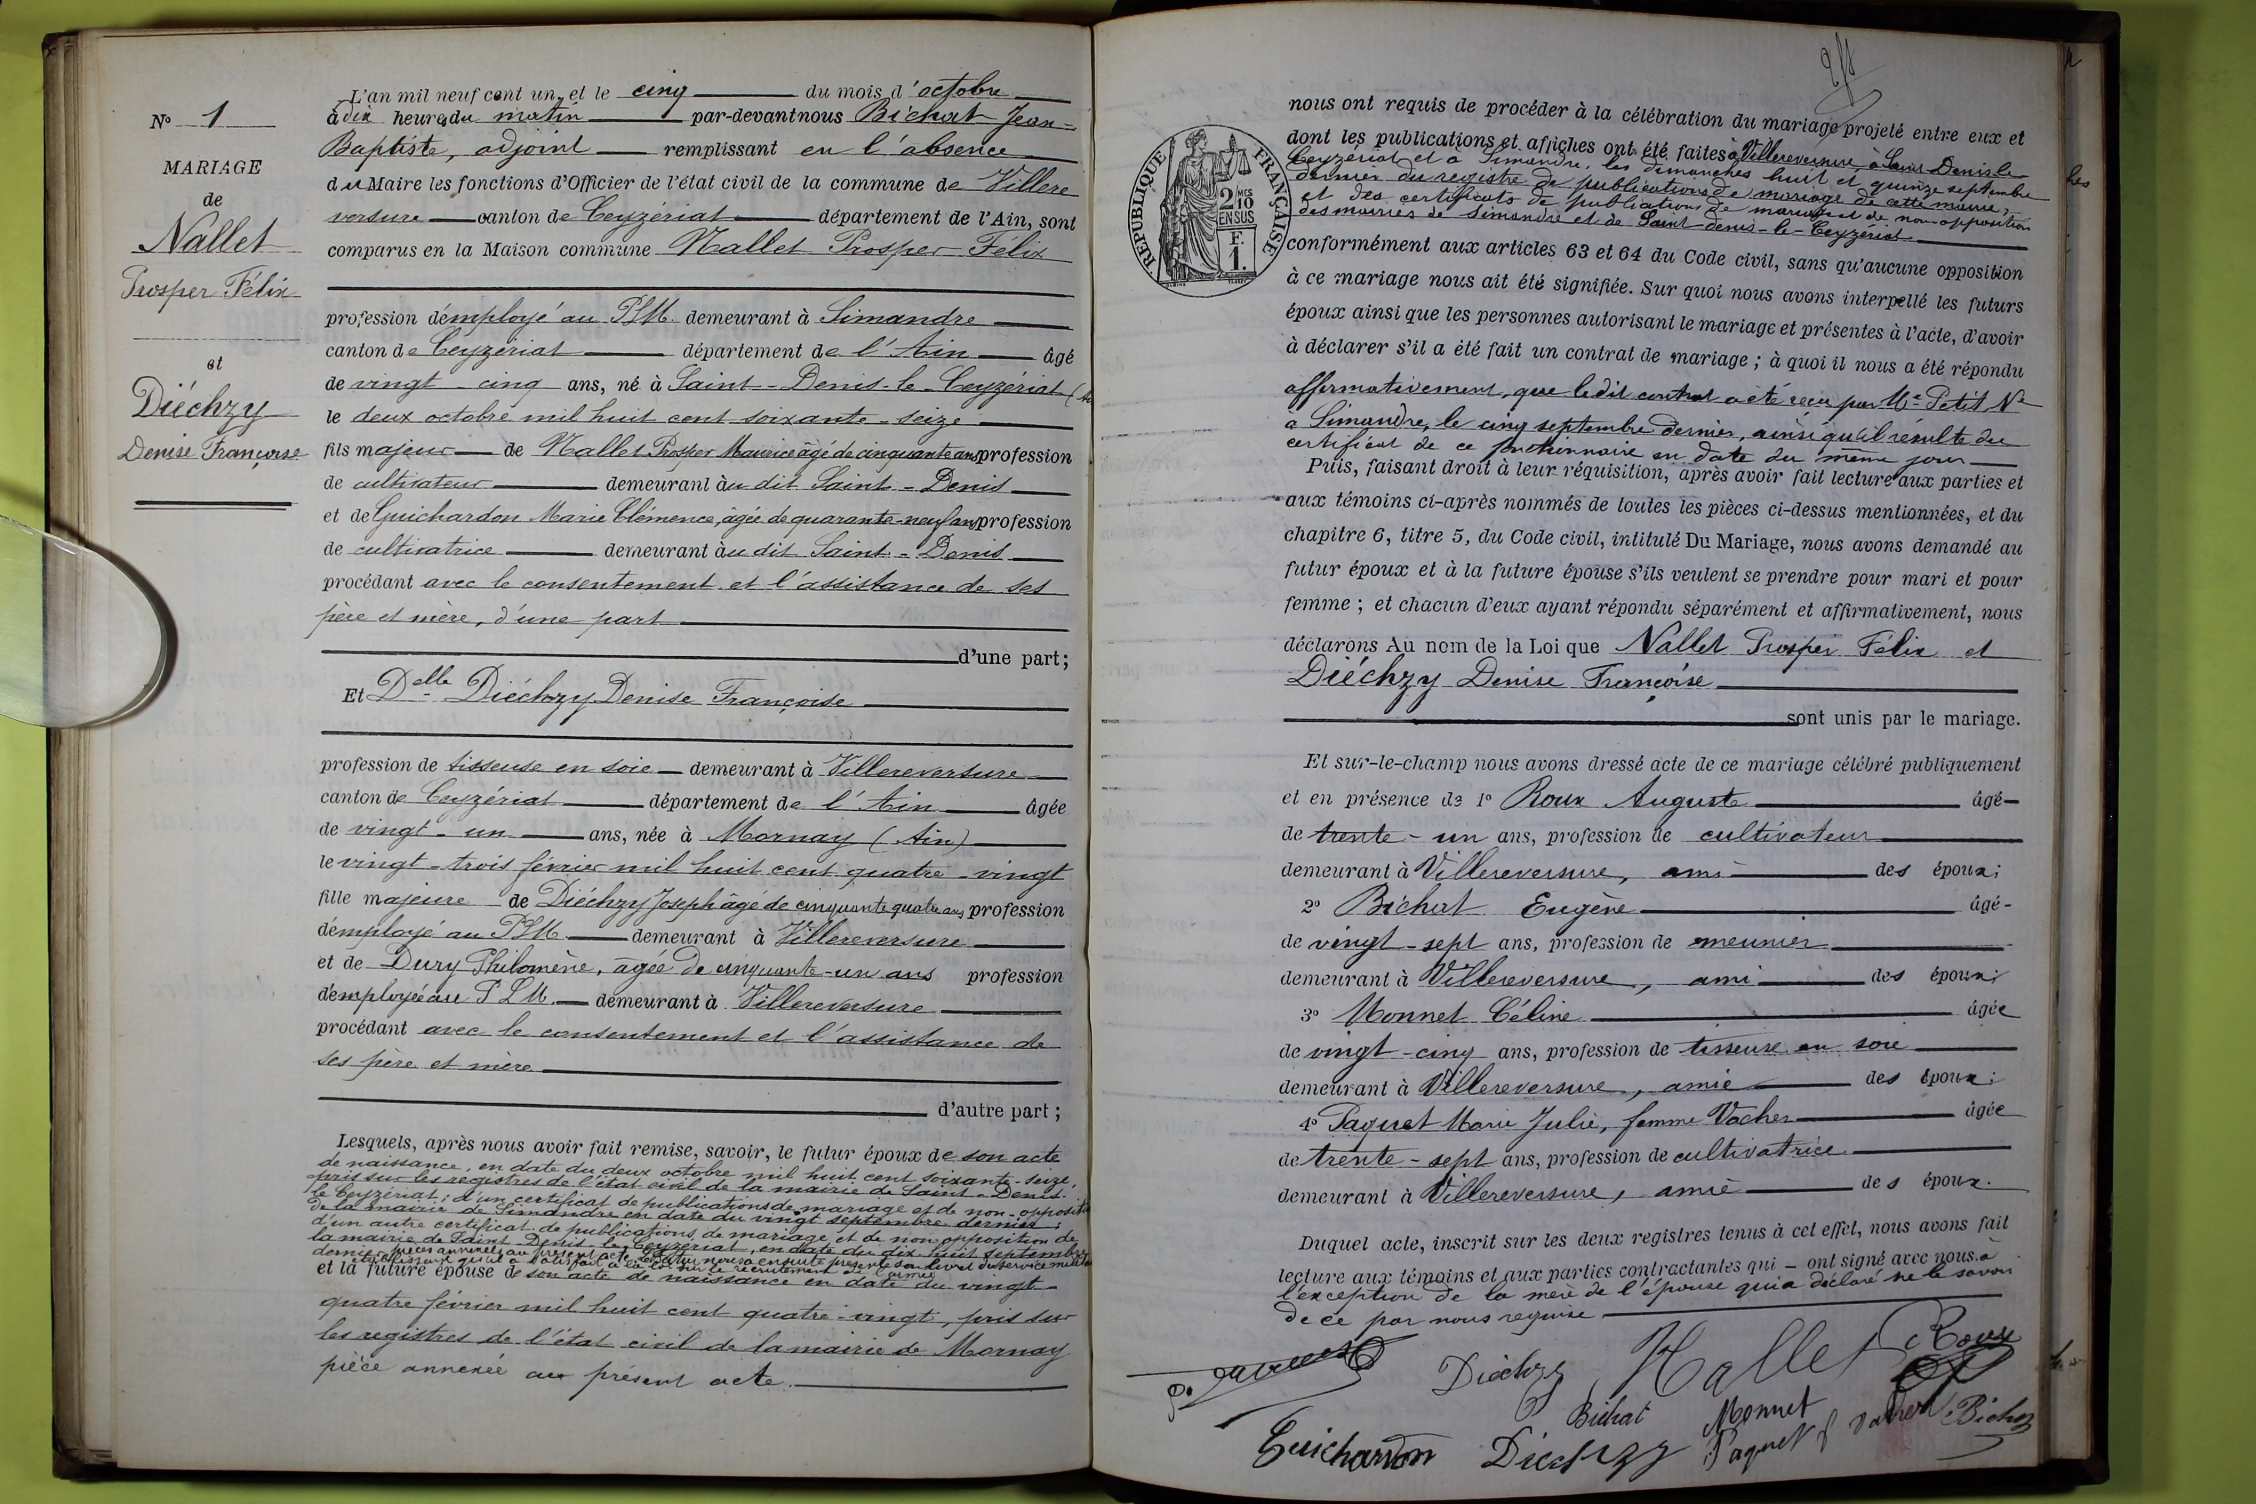 N° 1
MARIAGE
de
Nallet
Prosper Félix
et
Diéchzy
Denise Françoise
L'an mil neuf cent un, et le cinq du mois d'octobre
à dix heures du matin par-devant nous Bichat Jean-
Baptiste, adjoint remplissant en l'absence
du Maire les fonctions d'Officier de l'état civil de la commune de Villere
versure canton de Ceyzériat département de l'Ain, sont
comparus en la Maison commune Nallet Prosper Félix
profession d'employé au PLM demeurant à Simandre
canton de Ceyzériat département de l'Ain âgé
de vingt-cinq ans, né à Saint-Denis-le-Ceyzériat
le deux octobre mil huit cent soixante-seize
fils majeur de Nallet Prosper Maurice âgé de cinquante ans profession
de cultivateur demeurant au dit Saint-Denis
et de Guichardon Marie Clémence, âgée de quarante-neuf ans profession
de cultivatrice demeurant au dit Saint-Denis
procédant avec le consentement et l'assistance de ses
père et mère, d'une part
d'une part;
Et Delle Diéchzy Denise Françoise
profession de tisseuse en soie demeurant à Villereversure
canton de Ceyzériat département de l'Ain âgée
de vingt-un ans, née à Mornay (Ain)
le vingt-trois février mil huit cent quatre-vingt
fille majeure de Diéchzy Joseph âgé de cinquante quatre ans profession
d'employé au PLM demeurant à Villereversure
et de Dury Philomène, âgée de cinquante-un ans profession
d'employée au PLM demeurant à Villereversure
procédant avec le consentement et l'assistance de
ses père et mère
d'autre part;
Lesquels, après nous avoir fait remise, savoir, le futur époux de son acte
de naissance, en date du deux octobre mil huit cent soixante-seize,
pris sur les registres de l'état civil de la mairie de Saint-Denis-
le Ceyzériat; d'un certificat de publications de mariage et de non-opposition
de la mairie de Simandre en date du vingt septembre dernier;
d'un autre certificat de publications de mariage et de non opposition de
la mairie de Saint-Denis-le-Ceyzériat, en date du dix huit septembre
dernier, pièces annexées au présent acte. nous a ensuite présenté son livret du service militaire
établissant qu'il a satisfait à la loi sur le recrutement de l'armée
et la future épouse de son acte de naissance en date du vingt-
quatre février mil huit cent quatre-vingt, pris sur
les registres de l'état civil de la mairie de Mornay
pièce annexée au présent acte.
RÉPUBLIQUE FRANÇAISE
2 MES
10
EN SUS
F.
1.
nous ont requis de procéder à la célébration du mariage projeté entre eux et
dont les publications et affiches ont été faites à Villereversure, à Saint Denis le
Ceyzériat et à Simandre, les dimanches huit et quinze septembre
dernier du registre de publications de mariage de cette mairie,
et des certificats de publications de mariage et de non-opposition
des mairies de Simandre et de Saint-denis-le-Ceyzériat
conformément aux articles 63 et 64 du Code civil, sans qu'aucune opposition
à ce mariage nous ait été signifiée. Sur quoi nous avons interpellé les futurs
époux ainsi que les personnes autorisant le mariage et présentes à l'acte, d'avoir
à déclarer s'il a été fait un contrat de mariage; à quoi il nous a été répondu
affirmativement, que ledit contrat a été reçu par Me Petit Nre
à Simandre, le cinq septembre dernier, ainsi qu'il résulte du
certificat de ce fonctionnaire en date du même jour
Puis, faisant droit à leur réquisition, après avoir fait lecture aux parties et
aux témoins ci-après nommés de toutes les pièces ci-dessus mentionnées, et du
chapitre 6, titre 5, du Code civil, intitulé Du Mariage, nous avons demandé au
futur époux et à la future épouse s'ils veulent se prendre pour mari et pour
femme; et chacun d'eux ayant répondu séparément et affirmativement, nous
déclarons Au nom de la Loi que Nallet Prosper Félix et
Diéchzy Denise Françoise
sont unis par le mariage.
Et sur-le-champ nous avons dressé acte de ce mariage célébré publiquement
et en présence de 1° Roux Auguste âgé
de trente-un ans, profession de cultivateur
demeurant à Villereversure, ami des époux;
2° Bichat Eugène âgé
de vingt-sept ans, profession de meunier
demeurant à Villereversure, ami des époux;
3° Monnet Céline âgée
de vingt-cinq ans, profession de tisseuse en soie
demeurant à Villereversure, amie des époux;
4° Paquet Marie Julie, femme Vacher âgée
de trente-sept ans, profession de cultivatrice
demeurant à Villereversure, amie des époux.
Duquel acte, inscrit sur les deux registres tenus à cet effet, nous avons fait
lecture aux témoins et aux parties contractantes qui ont signé avec nous à
l'exception de la mère de l'épouse qui a déclaré ne le savoir
de ce par nous requise
Diéchzy Nallet Roux
Bichat Monnet
Guichardon Diéchzy Paquet f Vacher Bichat